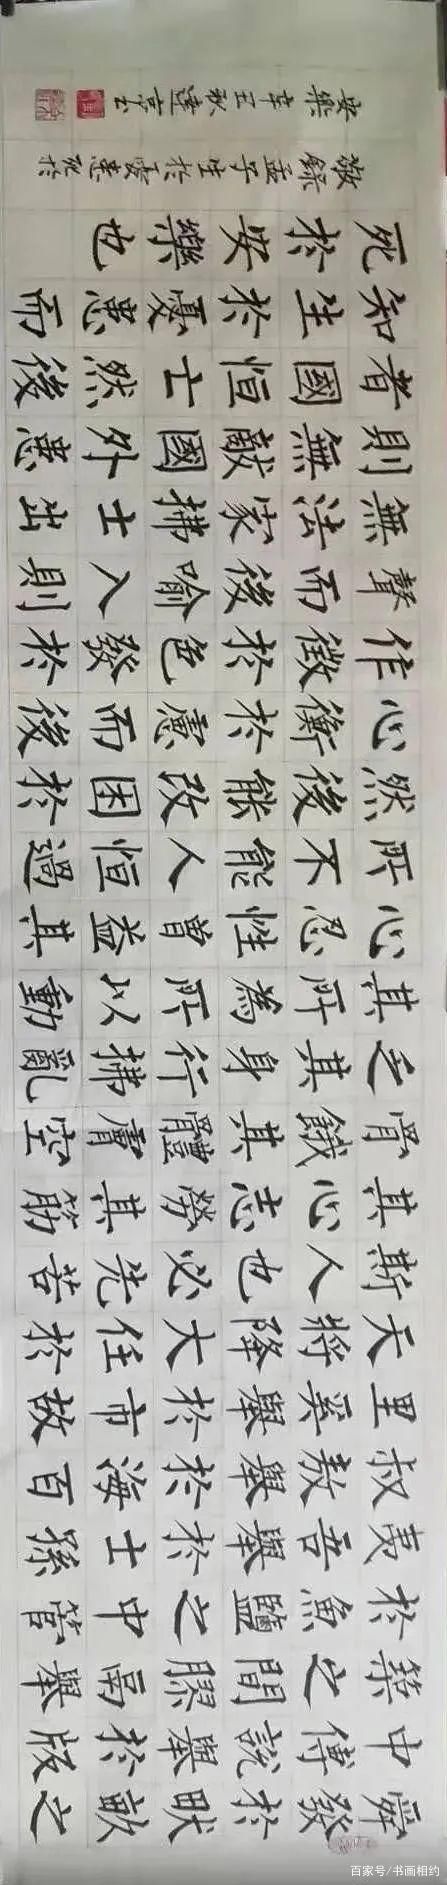 舜發於畎畝之
中傅說舉於版
築之間膠鬲舉
於魚鹽之中管
夷吾舉於士孫
叔敖舉於海百
里奚舉於市故
天將降大任於
斯人也必先苦
其心志勞其筋
骨餓其體膚空
乏其身行拂亂
其所為所以動
心忍性曾益其
所不能人恒過
然後能改困於
心衡於慮而後
作徵於色發於
聲而後喻入則
無法家拂士出
則無敵國外患
者國恒亡然後
知生於憂患而
死於安樂也
敬錄孟子生於憂患死於
安樂辛丑秋
百家号/书画相约